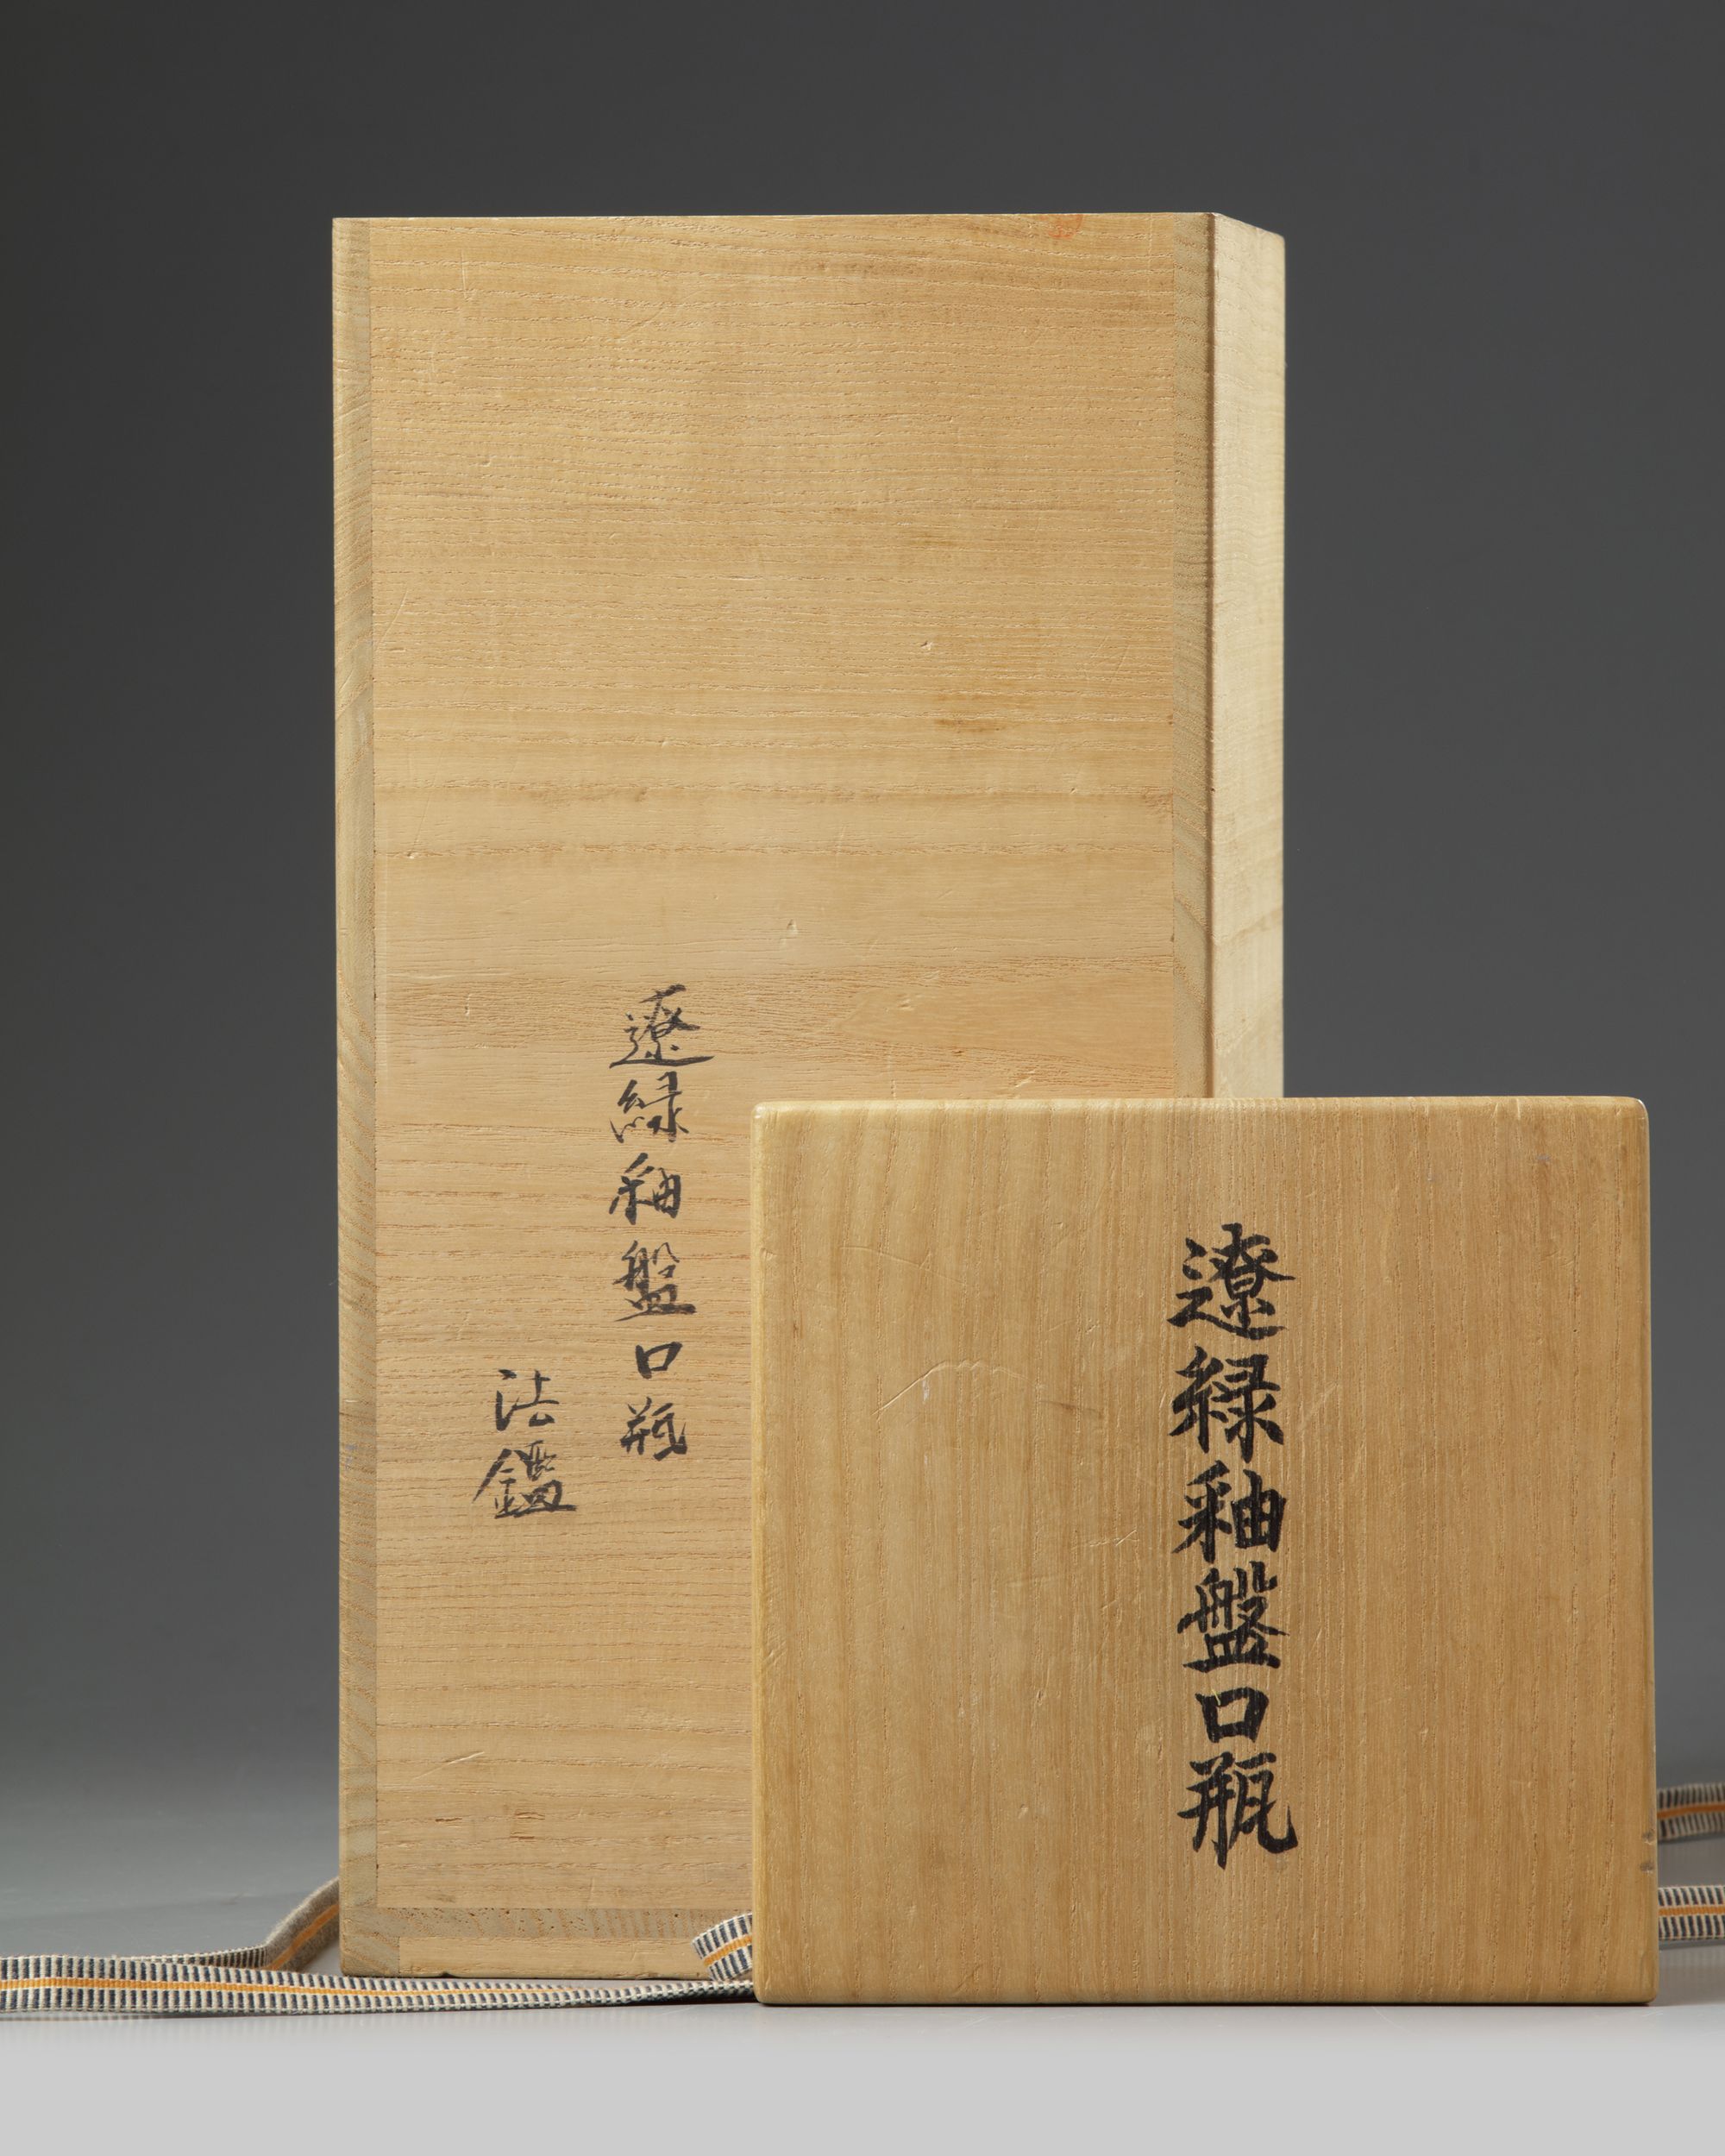 遼緑釉盤口瓶
法鑑
遼緑釉盤口瓶